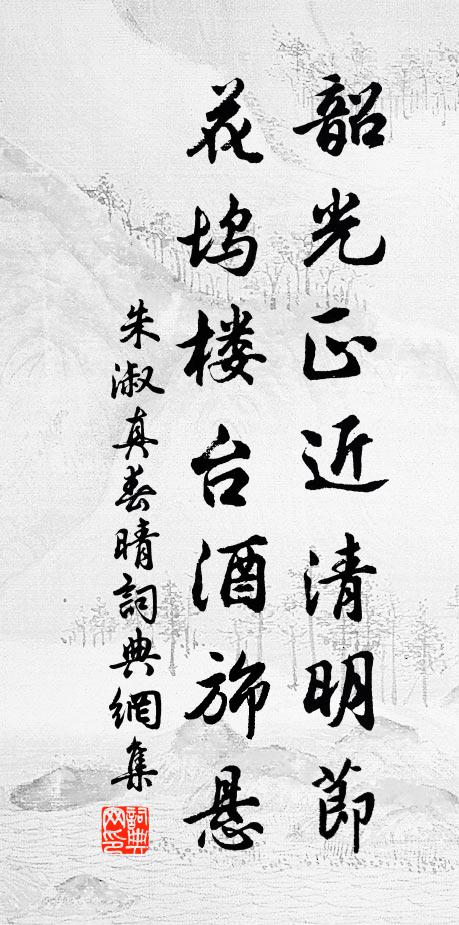 韶光正近清明節
花坞楼台酒旆悬
朱淑真春晴詞典網集
詞典网印